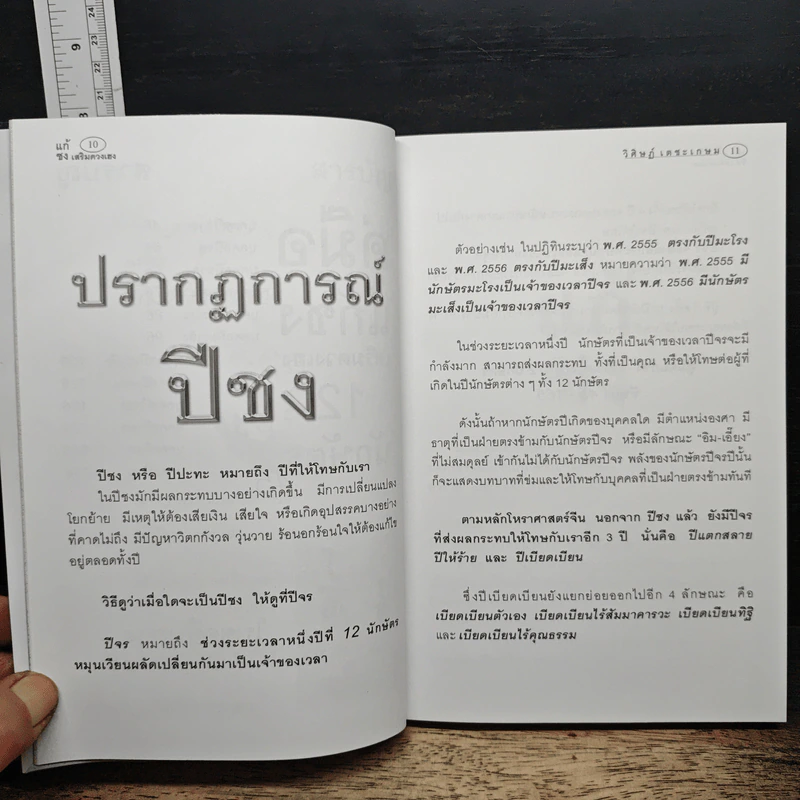 9
24
23
22
21
8
แก้
ชง เสริมดวงเฮง
10
ปรากฏการณ์
ปีชง
ปีชง หรือ ปีปะทะ หมายถึง ปีที่ให้โทษกับเรา
ในปีชงมักมีผลกระทบบางอย่างเกิดขึ้น มีการเปลี่ยนแปลง
โยกย้าย มีเหตุให้ต้องเสียเงิน เสียใจ หรือเกิดอุปสรรคบางอย่าง
ที่คาดไม่ถึง มีปัญหาวิตกกังวล วุ่นวาย ร้อนอกร้อนใจให้ต้องแก้ไข
อยู่ตลอดทั้งปี
วิธีดูว่าเมื่อใดจะเป็นปีชง ให้ดูที่ปีจร
ปีจร หมายถึง ช่วงระยะเวลาหนึ่งปีที่ 12 นักษัตร
หมุนเวียนผลัดเปลี่ยนกันมาเป็นเจ้าของเวลา
วิศิษฏ์ เตชะเกษม 11
ตัวอย่างเช่น ในปฏิทินระบุว่า พ.ศ. 2555 ตรงกับปีมะโรง
และ พ.ศ. 2556 ตรงกับปีมะเส็ง หมายความว่า พ.ศ. 2555 มี
นักษัตรมะโรงเป็นเจ้าของเวลาปีจร และ พ.ศ. 2556 มีนักษัตร
มะเส็งเป็นเจ้าของเวลาปีจร
ในช่วงระยะเวลาหนึ่งปี นักษัตรที่เป็นเจ้าของเวลาปีจรจะมี
กำลังมาก สามารถส่งผลกระทบ ทั้งที่เป็นคุณ หรือให้โทษต่อผู้ที่
เกิดในปีนักษัตรต่าง ๆ ทั้ง 12 นักษัตร
ดังนั้นถ้าหากนักษัตรปีเกิดของบุคคลใด มีตำแหน่งองศา มี
ธาตุที่เป็นฝ่ายตรงข้ามกับนักษัตรปีจร หรือมีลักษณะ "อิม-เอี๊ยง"
ที่ไม่สมดุลย์ เข้ากันไม่ได้กับนักษัตรปีจร พลังของนักษัตรปีจรปีนั้น
ก็จะแสดงบทบาทที่ข่มและให้โทษกับบุคคลที่เป็นฝ่ายตรงข้ามทันที
ตามหลักโหราศาสตร์จีน นอกจาก ปีชง แล้ว ยังมีปีจร
ที่ส่งผลกระทบให้โทษกับเราอีก 3 ปี นั่นคือ ปีแตกสลาย
ปีให้ร้าย และ ปีเบียดเบียน
ซึ่งปีเบียดเบียนยังแยกย่อยออกไปอีก 4 ลักษณะ คือ
เบียดเบียนตัวเอง เบียดเบียนไร้สัมมาคารวะ เบียดเบียนทิฐิ
และ เบียดเบียนไร้คุณธรรม